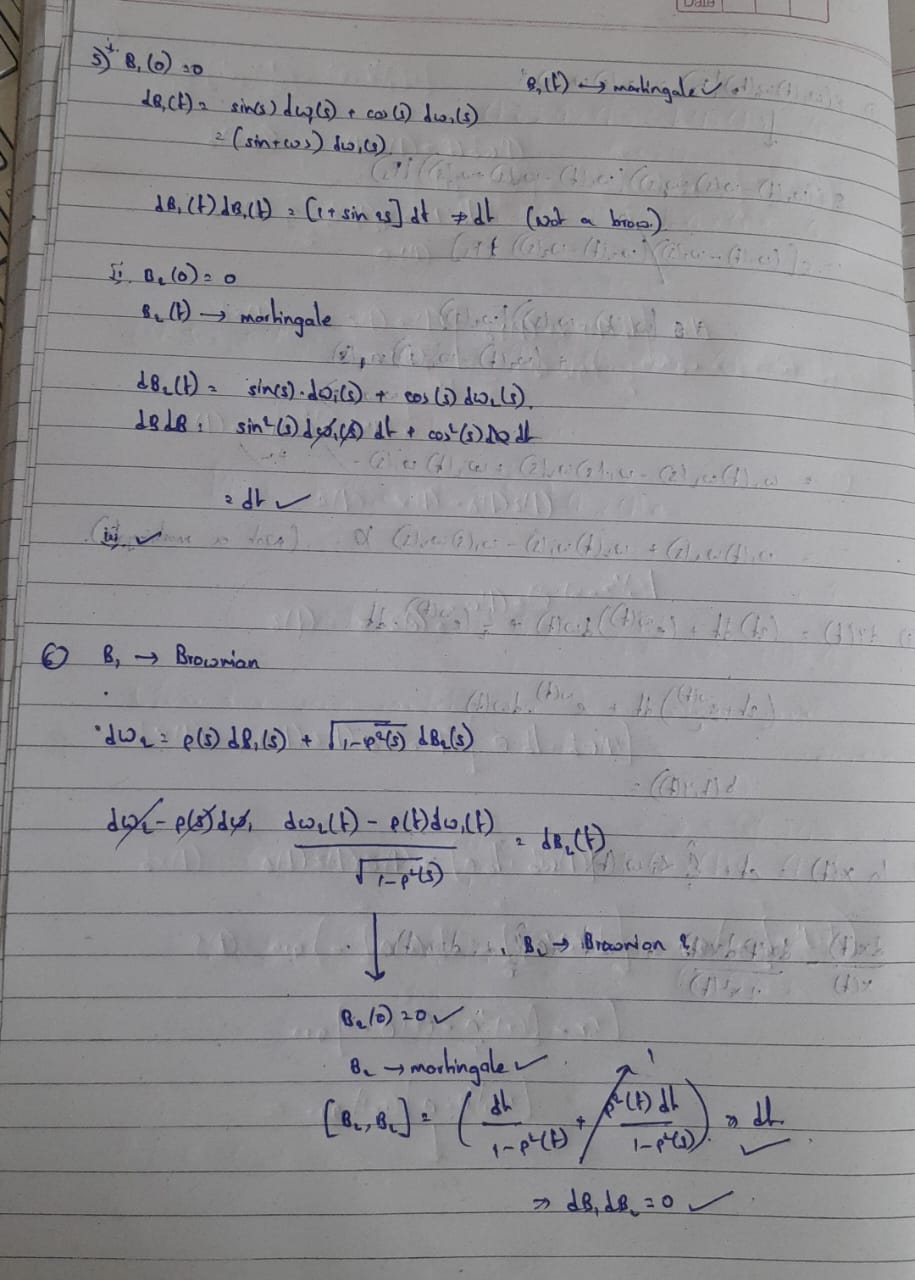 Date
5) i. B₁(0) = 0
B₁(t) → martingale ✓
dB₁(t) = sin(s) dw₁(s) + cos(s) dw₁(s)
= (sin+cos) dw₁(s)
dB₁(t) dB₁(t) = [1+sin 2s] dt ≠ dt (not a brow.)
ii. B₂(0) = 0
B₂(t) → martingale
dB₂(t) = sin(s).dw₁(s) + cos(s) dw₂(s).
dB dB = sin²(s) dt + cos²(s) dt
= dt ✓
(iii) ✓
⑥ B₁ → Brownian
dw₂ = ρ(s) dB₁(s) + √(1-ρ²(s)) dB₂(s)
(dw₂(t) - ρ(t)dw₁(t)) / √(1-ρ²(s)) = dB₂(t)
↓ B₂ → Brownian ?
B₂(0) = 0 ✓
B₂ → martingale ✓
[B₂, B₂] = (dt / (1-ρ²(t)) + ρ²(t) dt / (1-ρ²(s))) ⇒ dt ✓
⇒ dB₁ dB₂ = 0 ✓